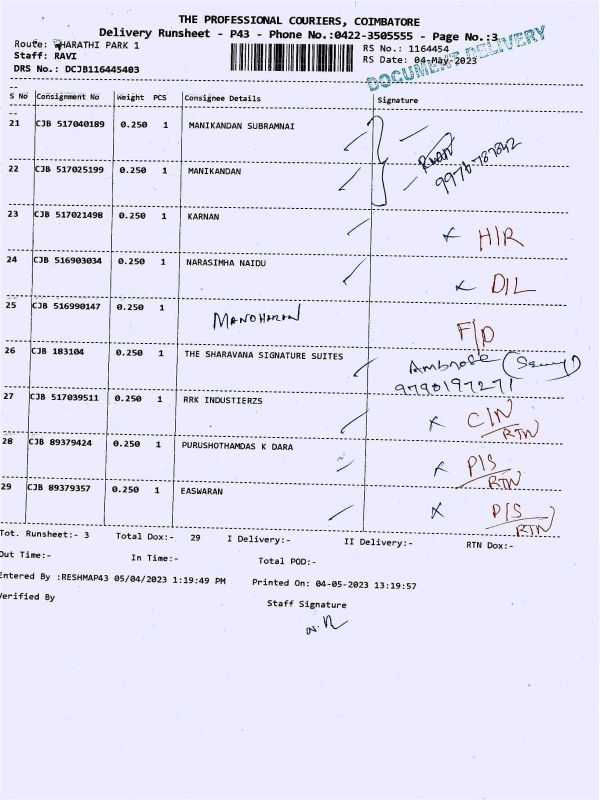 THE PROFESSIONAL COURIERS, COIMBATORE
Delivery Runsheet - P43 - Phone No.:0422-3505555 - Page No.:3
Route: BHARATHI PARK 1 RS No.: 1164454
Staff: RAVI RS Date: 04-May-2023
DRS No.: DCJB116445403
DOCUMENT DELIVERY
S No Consignment No Weight PCS Consignee Details Signature
21 CJB 517040189 0.250 1 MANIKANDAN SUBRAMNAI
22 CJB 517025199 0.250 1 MANIKANDAN
23 CJB 517021498 0.250 1 KARNAN H/R
24 CJB 516903034 0.250 1 NARASIMHA NAIDU D/L
25 CJB 516990147 0.250 1 MANOHARAN F/D
26 CJB 183104 0.250 1 THE SHARAVANA SIGNATURE SUITES Ambrose
9790197271
27 CJB 517039511 0.250 1 RRK INDUSTIERZS C/N
RTN
28 CJB 89379424 0.250 1 PURUSHOTHAMDAS K DARA P/S
RTN
29 CJB 89379357 0.250 1 EASWARAN P/S
RTN
Tot. Runsheet:- 3 Total Dox:- 29 I Delivery:- II Delivery:- RTN Dox:-
Out Time:- In Time:- Total POD:-
Entered By :RESHMAP43 05/04/2023 1:19:49 PM Printed On: 04-05-2023 13:19:57
Verified By Staff Signature